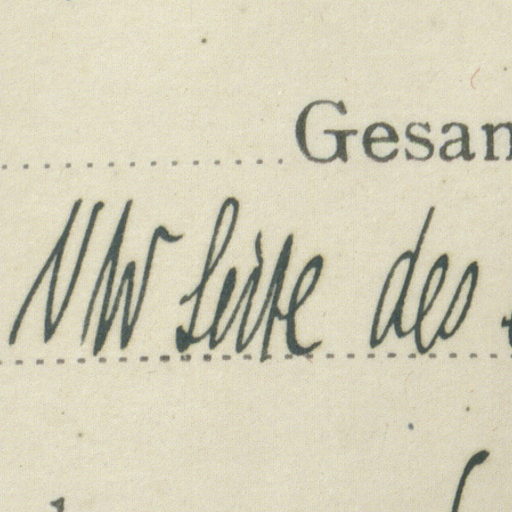 Gesam
NW Seite des